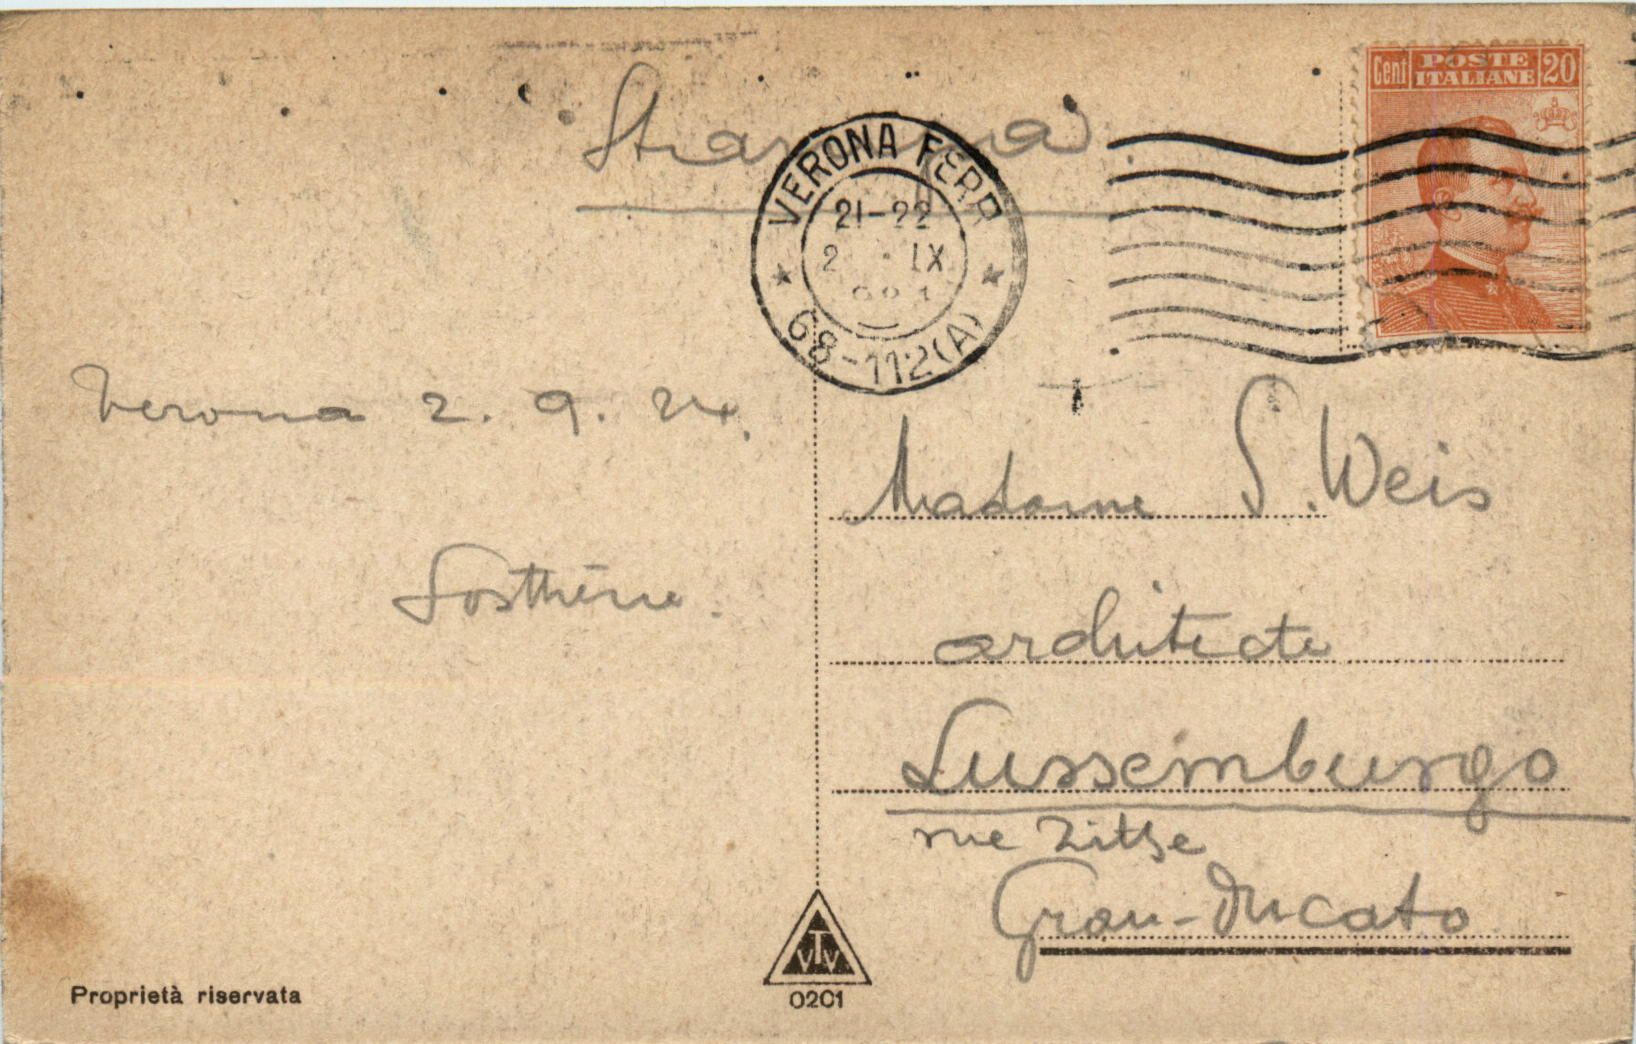 Stampa
Cent POSTE ITALIANE 20
VERONA FERR
21-22
2 IX
68-112(A)
Verona 2. 9. 24.
Sosthène.
Madame S. Weis
architecte
Lussemburgo
rue Zithe
Gran-Ducato
VTV
0201
Proprietà riservata